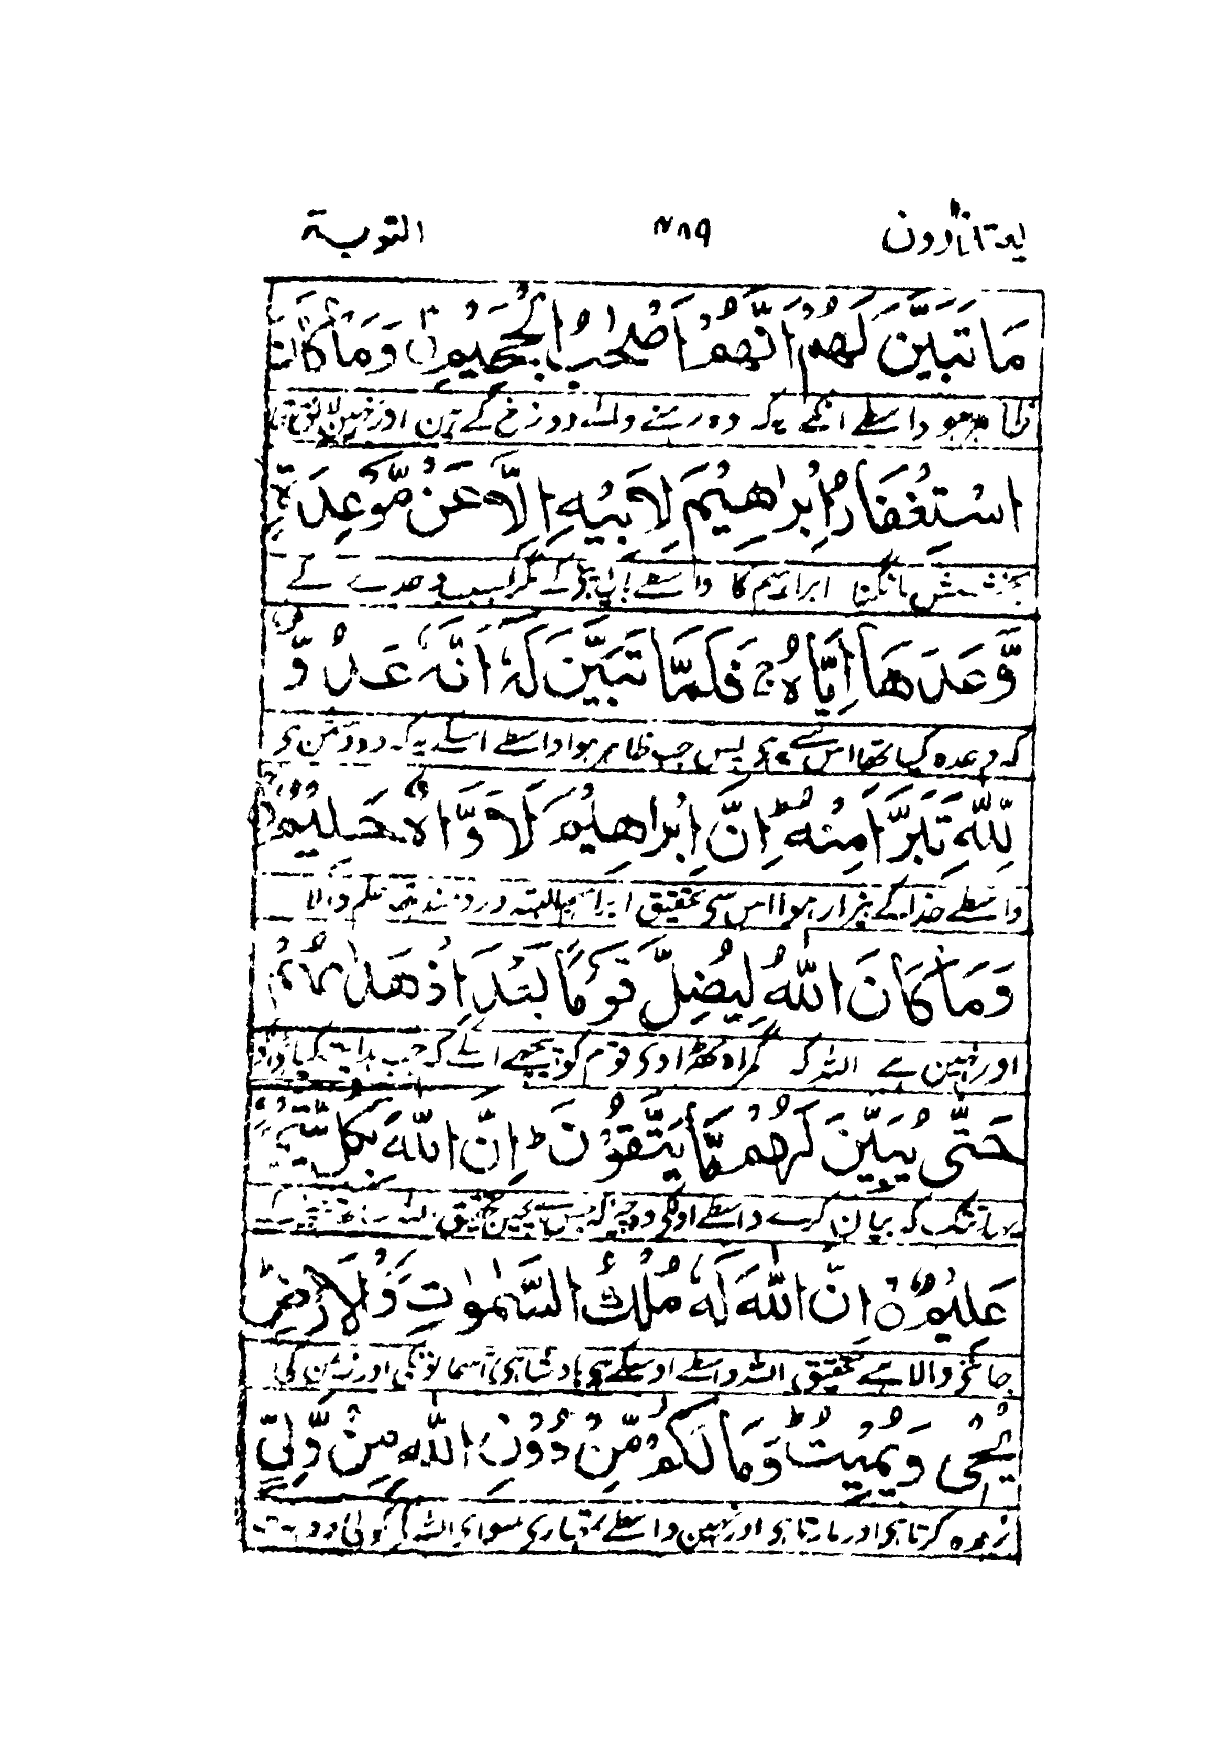 یعتذرون ۴۸۹ التوبة
مَا تَبَيَّنَ لَهُمْ اَنَّهُمْ اَصْحٰبُ الْجَحِيْمِ وَمَا كَانَ
ظاہر ہو واسطے انکے یہ کہ وہ رہنے والے دوزخ کے ہین اور نہین
اسْتِغْفَارُ اِبْرٰهِيْمَ لِاَبِيْهِ اِلَّا عَنْ مَّوْعِدَةٍ
بخشش مانگنا ابراہیم کا واسطے باپ اپنے کے مگر بسبب وعدے کے
وَّعَدَهَا اِيَّاهُ ج فَلَمَّا تَبَيَّنَ لَهٗ اَنَّهٗ عَدُوٌّ
کہ وعدہ کیا تھا اس سے پس جب ظاہر ہوا واسطے اسکے یہ کہ وہ دشمن ہی
لِّلّٰهِ تَبَرَّاَ مِنْهُ ط اِنَّ اِبْرٰهِيْمَ لَاَوَّاهٌ حَلِيْمٌ
واسطے خدا کے بیزار ہوا اس سی تحقیق ابراہیم البتہ دردمند تحمل والا
وَمَا كَانَ اللّٰهُ لِيُضِلَّ قَوْمًا بَعْدَ اِذْ هَدٰىهُمْ
اور نہین ہے اللہ کہ گمراہ کرے قوم کو پیچھے اسکے کہ جب ہدایت کیا
حَتّٰى يُبَيِّنَ لَهُمْ مَّا يَتَّقُوْنَ ط اِنَّ اللّٰهَ بِكُلِّ شَيْءٍ
یہانتک کہ بیان کرے واسطے اونکی وہ چیز کہ بچین تحقیق اللہ
عَلِيْمٌ ○ اِنَّ اللّٰهَ لَهٗ مُلْكُ السَّمٰوٰتِ وَالْاَرْضِ ط
جاننے والا ہے تحقیق اللہ واسطے اوسکے ہی بادشاہی آسمانونکی اور زمین کی
يُحْيٖ وَيُمِيْتُ ط وَمَا لَكُمْ مِّنْ دُوْنِ اللّٰهِ مِنْ وَّلِيٍّ
زندہ کرتا ہی اور مارتا ہی اور نہین واسطے تمہاری سوای اللہ کے کوئی دوست